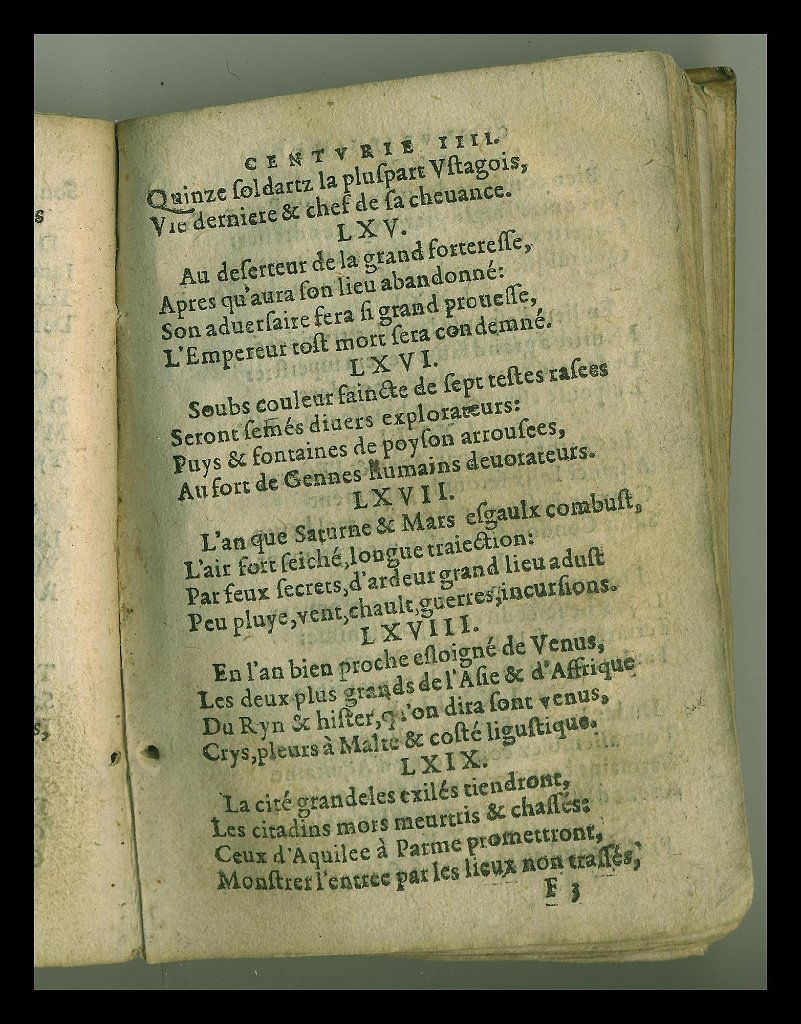 CENTVRIE IIII.
Quinze ſoldartz la pluſpart Vſtagois,
Vie derniere & chef de ſa cheuance.
LXV.
Au deſerteur de la grand fortereſſe,
Apres qu'aura ſon lieu abandonné:
Son aduerſaire fera ſi grand proueſſe,
L'Empereur toſt mort ſera condemné.
LXVI.
Soubs couleur faincte de ſept teſtes raſees
Seront ſemés diuers explorateurs:
Puys & fontaines de poyſon arrouſees,
Au fort de Gennes humains deuorateurs.
LXVII.
L'an que Saturne & Mars eſgaulx combuſt,
L'air fort ſeiché, longue traiection:
Par feux ſecrets, d'ardeur grand lieu aduſt
Peu pluye, vent, chault, guerres, incurſions.
LXVIII.
En l'an bien proche eſloigné de Venus,
Les deux plus grands de l'Aſie & d'Affrique
Du Ryn & hiſter, qu'on dira ſont venus,
Crys, pleurs à Malte & coſté liguſtique.
LXIX.
La cité grande les exilés tiendront,
Les citadins mors meurtris & chaſſés:
Ceux d'Aquilee à Parme promettront,
Monſtrer l'entree par les lieux non traſſés,
F 3